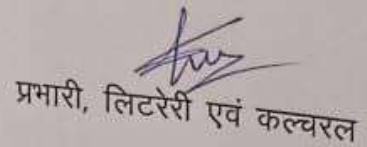 प्रभारी, लिटरेरी एवं कल्चरल